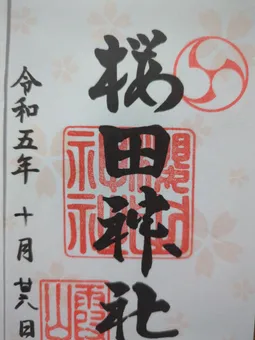 桜田神社
令和五年 十月廿八日
霞山